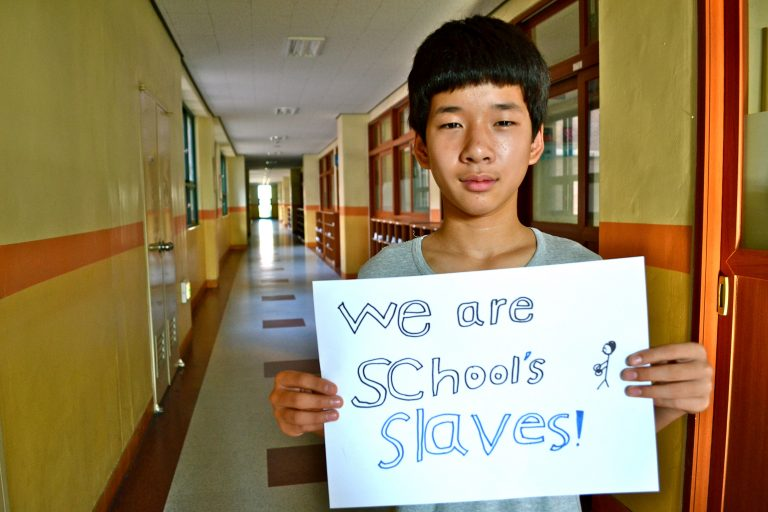 We are
SCHool's
Slaves!